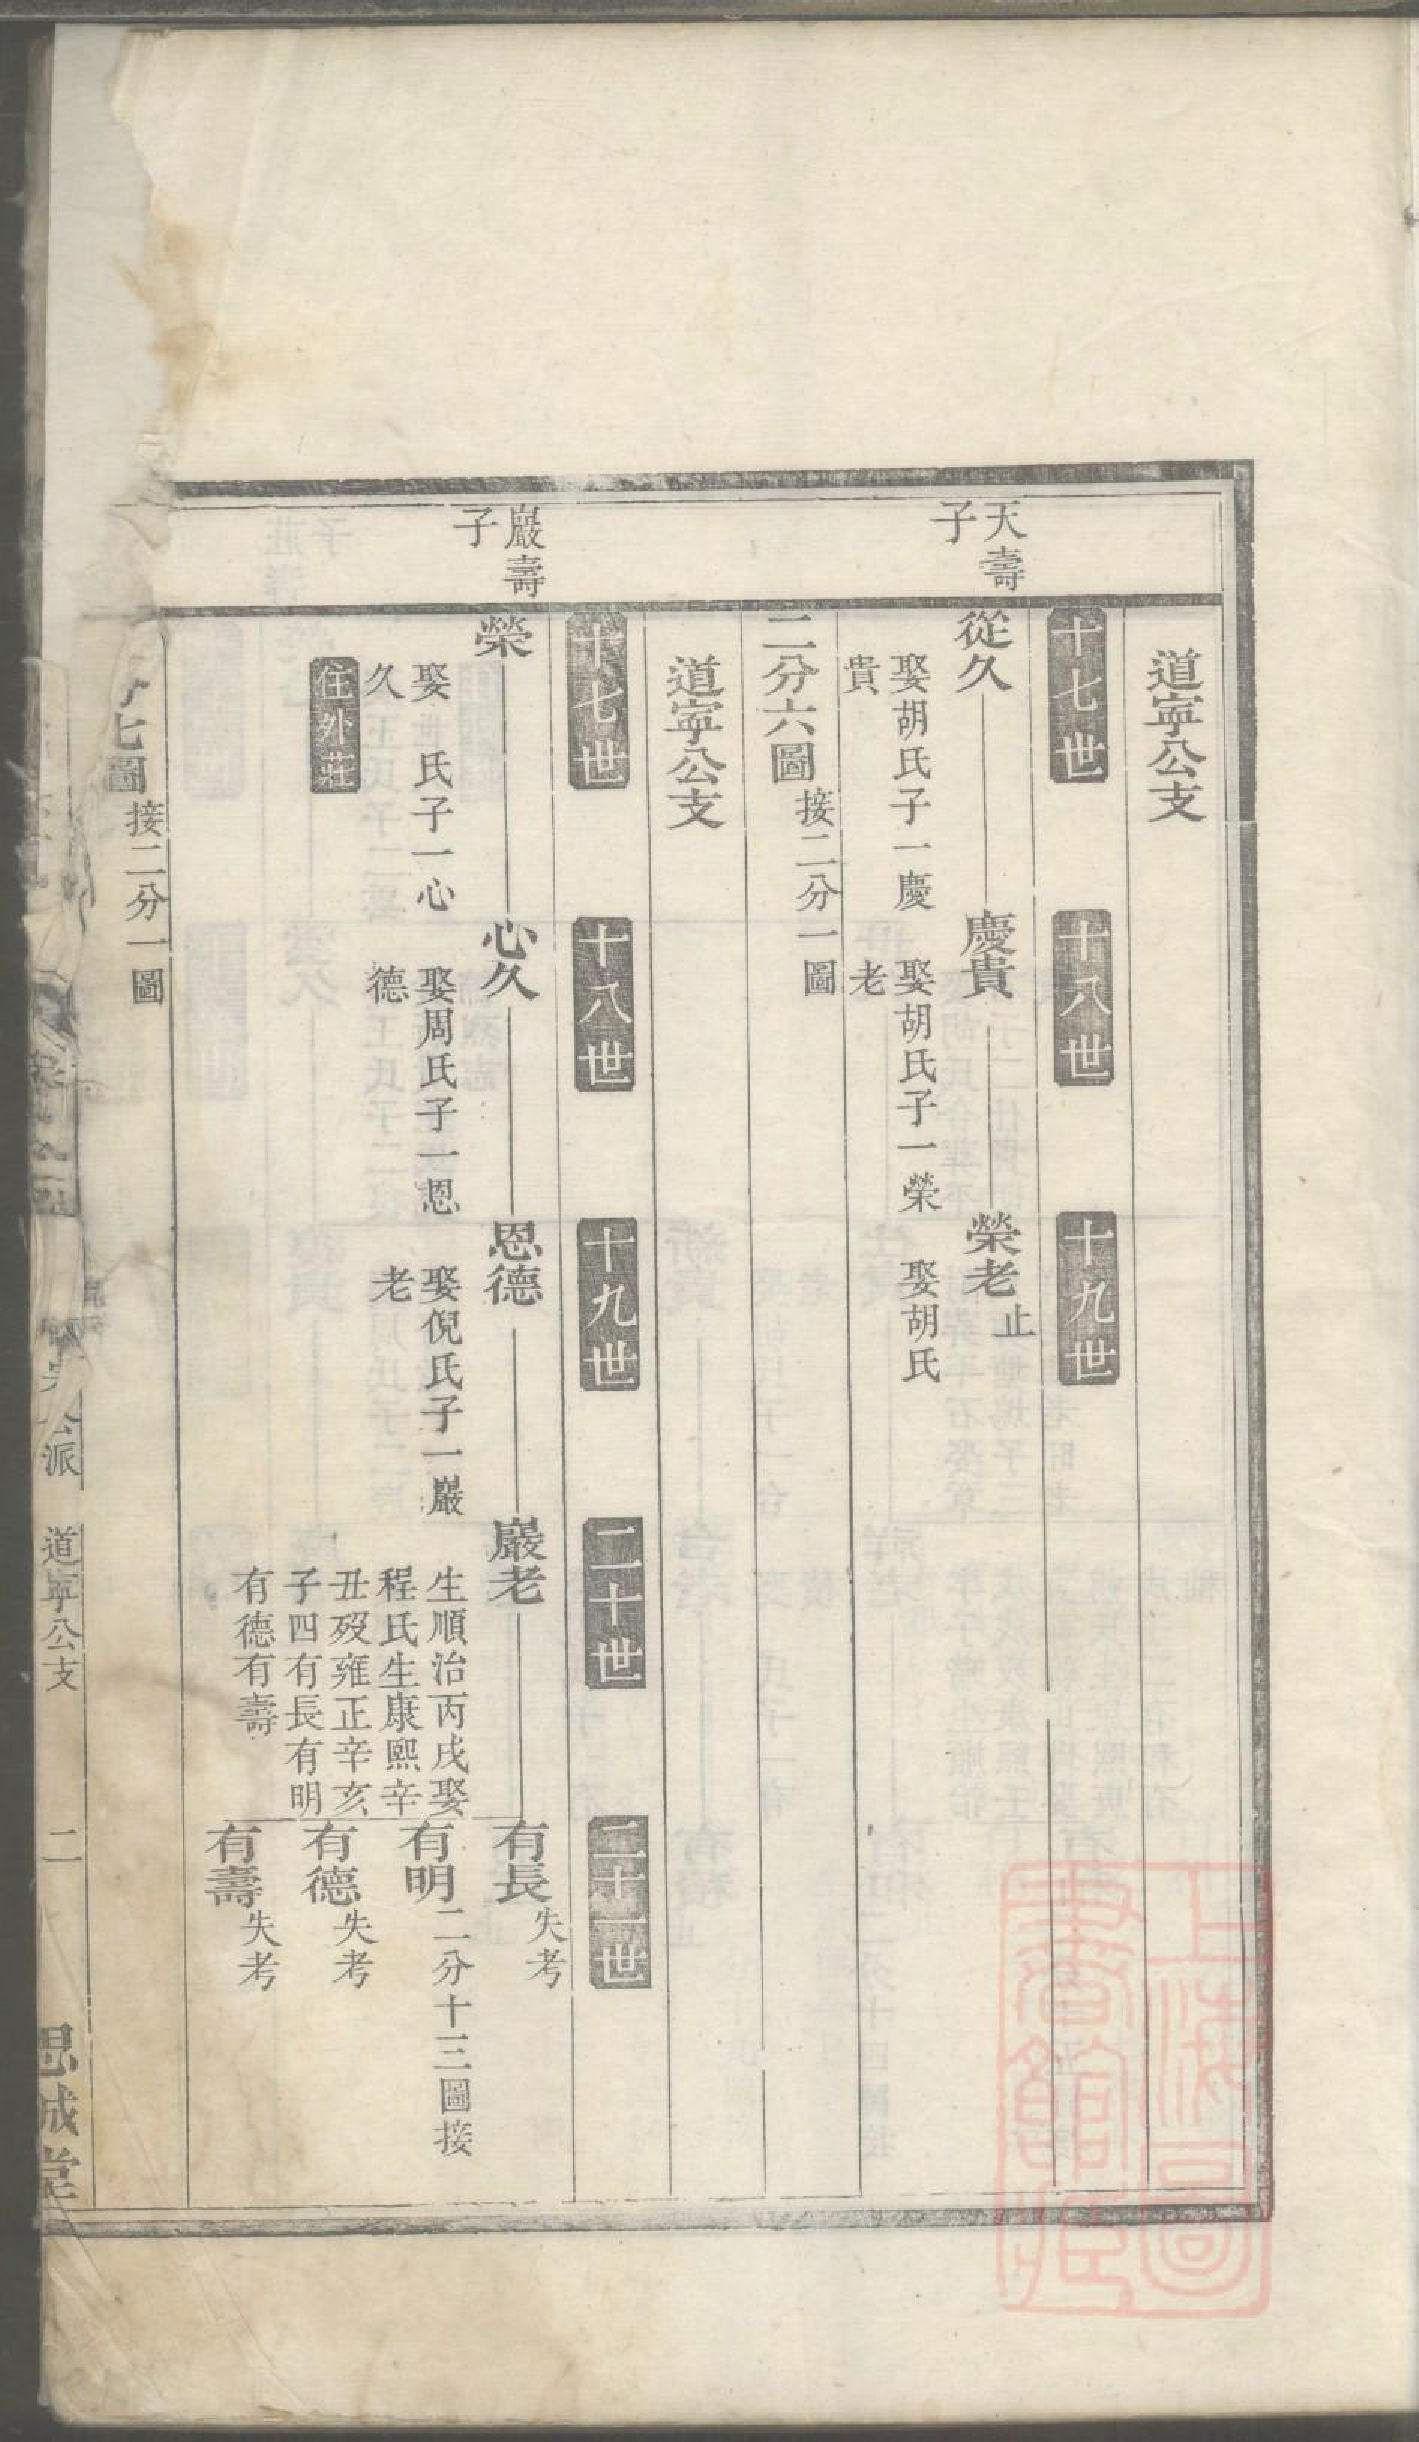 道寧公支
十七世
十八世
十九世
天壽
子
從久
慶貴
榮老
止
娶胡氏子一慶
貴
娶胡氏子一榮
老
娶胡氏
二分六圖
接二分一圖
道寧公支
十七世
十八世
十九世
二十世
二十一世
巖壽
子
榮
心久
恩德
巖老
有長
失考
娶 氏子一心
久
住外莊
娶周氏子一恩
德
娶倪氏子一巖
老
生順治丙戌娶
程氏生康熙辛
丑歿雍正辛亥
子四有長有明
有德有壽
有明
二分十三圖接
有德
失考
有壽
失考
七圖
接二分一圖
公派
道寧公支
二
思誠堂
上海圖
書館藏